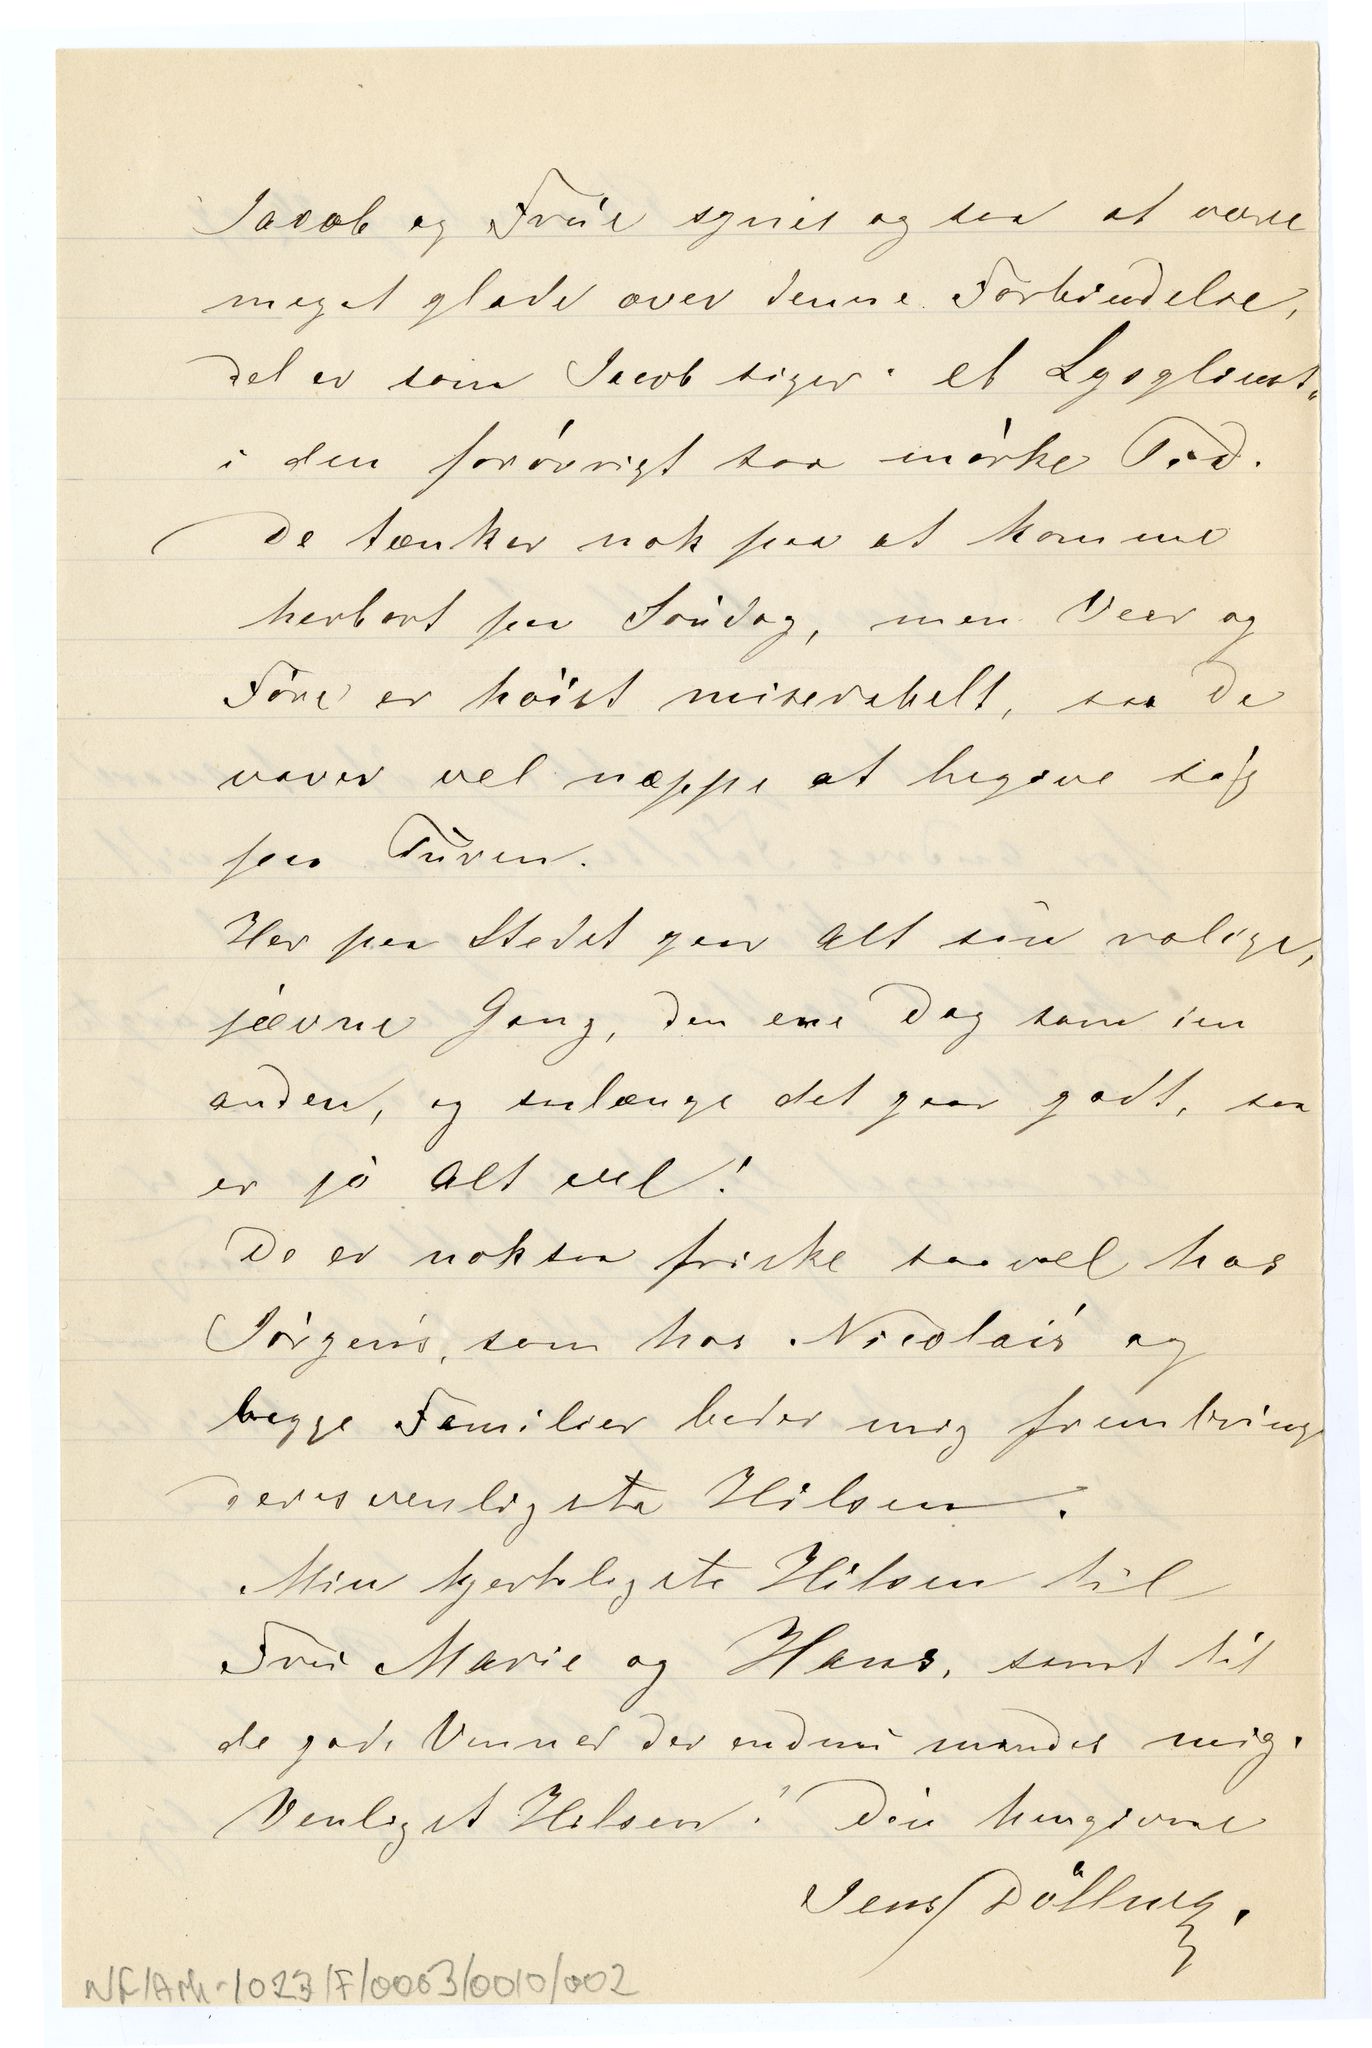 Jacob og Frue synes ogsaa at være
meget glade over denne Forbindelse,
det er som Jacob siger "et Lysglimt"
i den forövrigt saa mörke Tid.
De tænker nok paa at komme
herbort paa Söndag, men Veir og
Före er höist miserabelt, saa de
vover vel neppe at begive sig
paa Turen.
Her paa Stedet gaar Alt sin rolige,
jævne Gang, den ene Dag som den
anden, og saalænge det gaar godt, saa
er jo Alt vel!
De er noksaa friske saavel hos
Jörgens, som hos Nicolais og
begge Familier beder mig frembringe
deres venligste Hilsen.
Min hjerteligste Hilsen til
Fru Marie og Hans, samt til
de gode Venner der endnu mindes mig.
Venligst Hilsen. Din hengivne
Jens
NF/Ark-1023/F/0003/0010/002